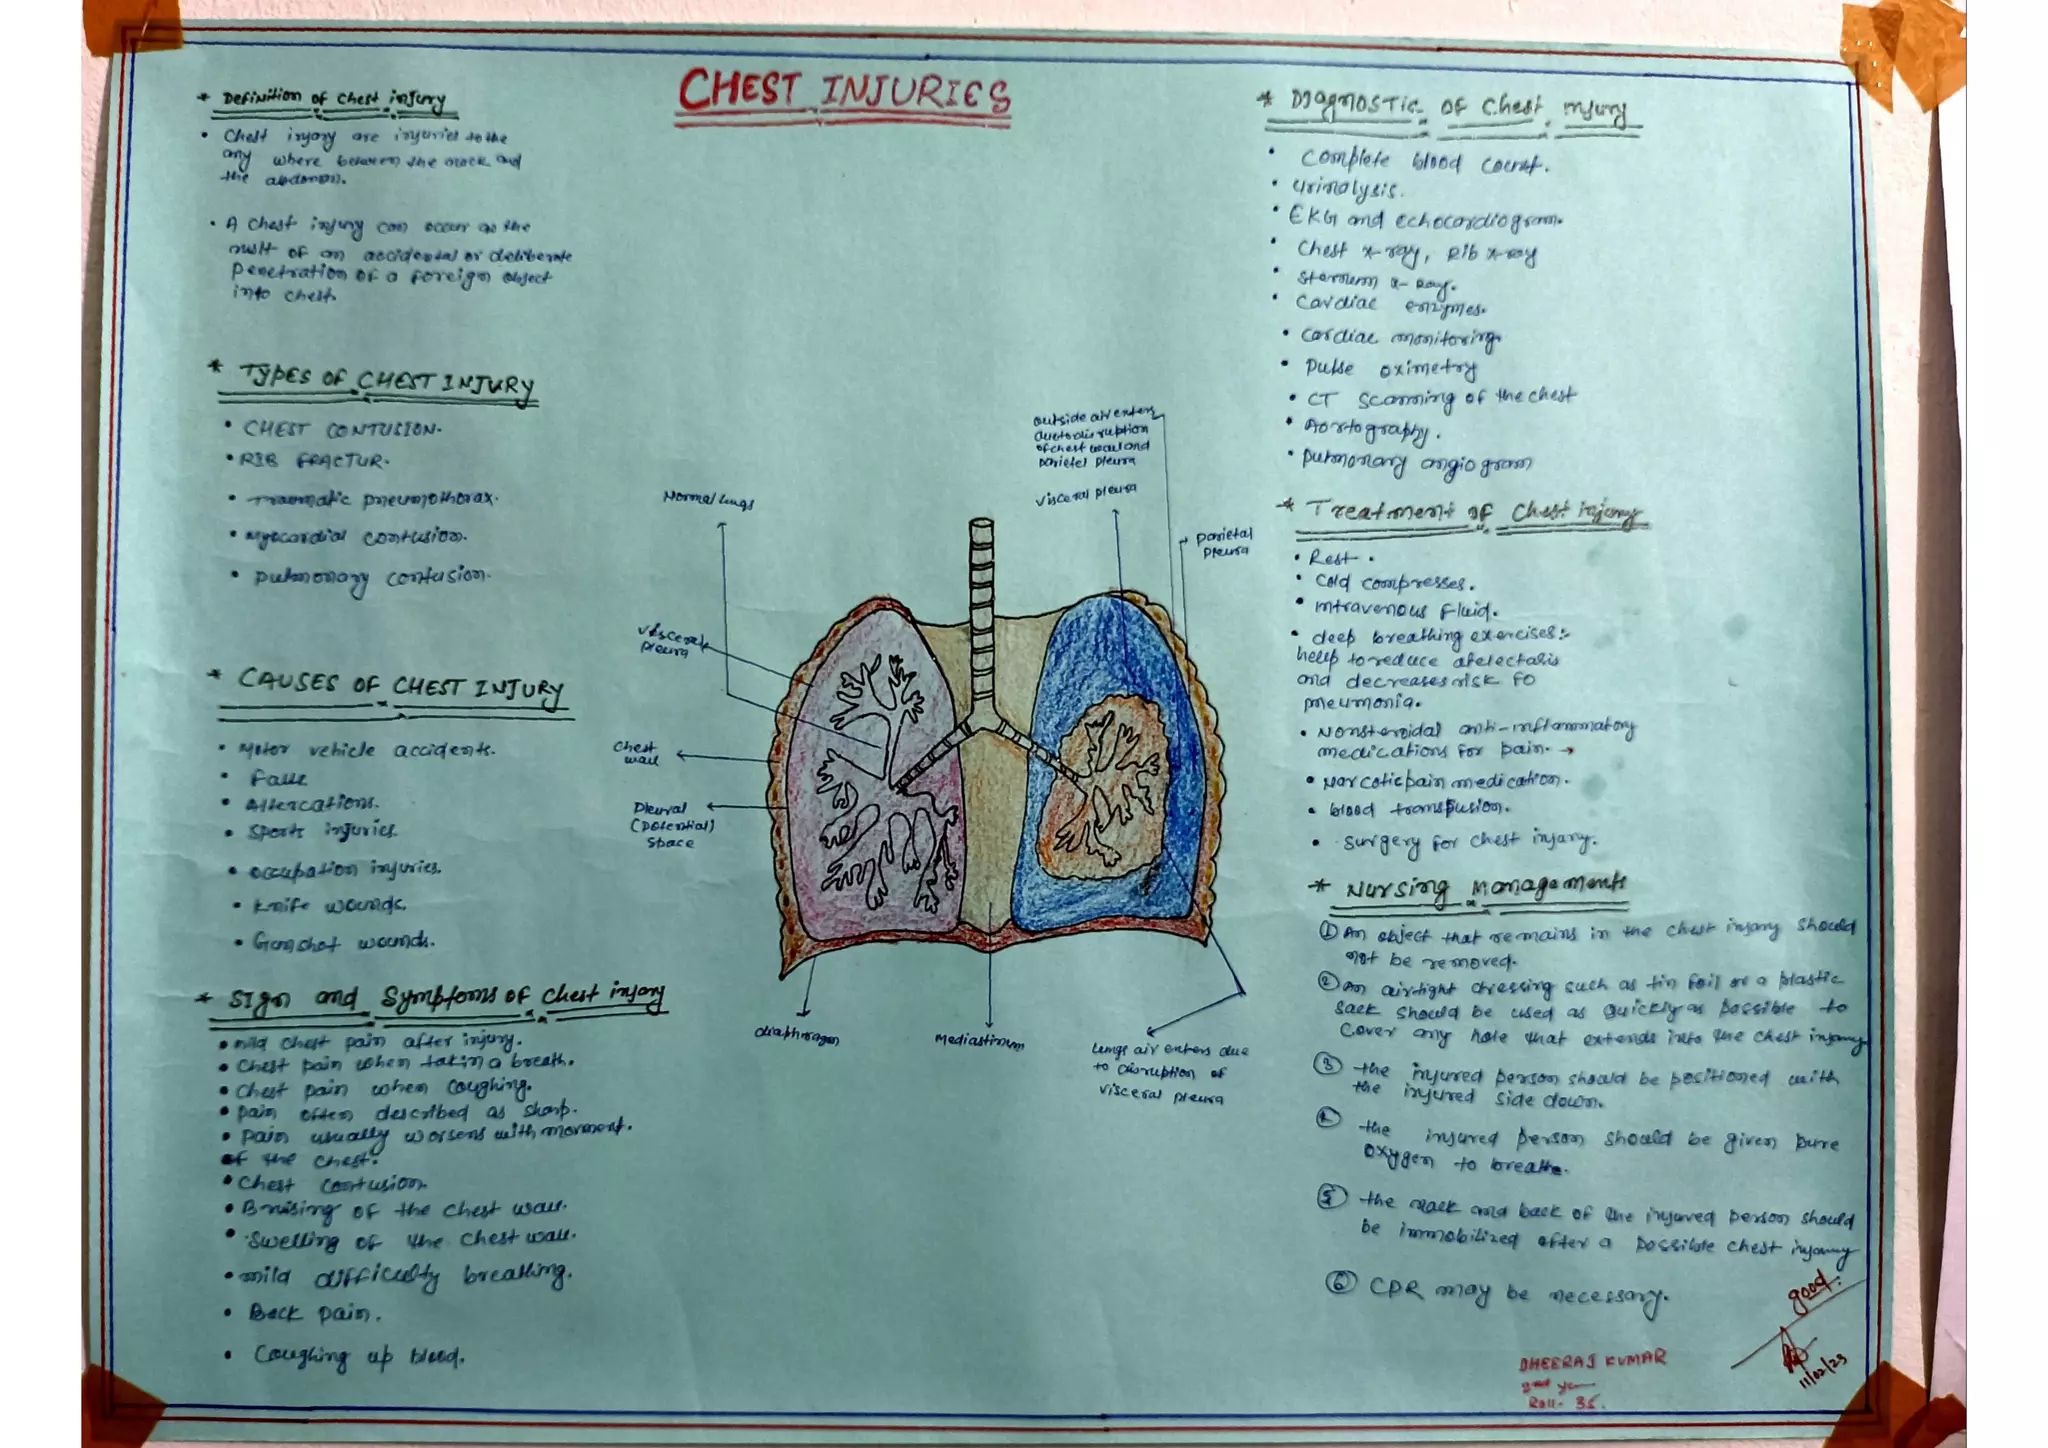 CHEST INJURIES
* Definition of chest injury
• Chest injury are injuries to the
any where between the neck and
the abdomen.
• A chest injury can occur as the
result of an accidental or deliberate
penetration of a foreign object
into chest.
* TYPES OF CHEST INJURY
• CHEST CONTUSION.
• RIB FRACTUR.
• Traumatic pneumothorax.
• Myocardial contusion.
• pulmonary contusion.
* CAUSES OF CHEST INJURY
• Motor vehicle accidents.
• Falls
• Altercations.
• Sports injuries.
• occupation injuries.
• Knife wounds.
• Gunshot wounds.
* Sign and Symptoms of chest injury
• mild chest pain after injury.
• Chest pain when takin a breath.
• Chest pain when coughing.
• pain often described as sharp.
• pain usually worsens with movment.
of the chest.
• Chest contusion.
• Bruising of the chest wall.
• Swelling of the chest wall.
• mild difficulty breathing.
• Back pain.
• Coughing up blood.
Normal lungs
visceral
pleura
Chest
wall
Pleural
(potential)
space
diaphragm
Mediastinum
outside air enters
due to disruption
of chest wall and
parietel pleura
visceral pleura
parietal
pleura
Lungs air enters due
to disruption of
visceral pleura
* Diagnostic of chest injury
• complete blood count.
• urinalysis.
• EKG and echocardiogram.
• Chest x-ray, Rib x-ray
• sternum x-Ray.
• Cardiac enzymes.
• cardiac monitoring.
• pulse oximetry
• CT scanning of the chest
• Aortography.
• pulmonary angiogram
* Treatment of chest injury
• Rest.
• cold compresses.
• intravenous fluid.
• deep breathing exercises:-
help to reduce atelectasis
and decreases risk fo
pneumonia.
• Nonsteroidal anti-inflammatory
medications for pain. →
• Narcotic pain medication.
• blood transfusion.
• surgery for chest injury.
* Nursing Managements
① An object that remains in the chest injury should
not be removed.
② An airtight dressing such as tin foil or a plastic
sack should be used as quickly as possible to
cover any hole that extends into the chest injury
③ the injured person should be positioned with
the injured side down.
④ the injured person should be given pure
oxygen to breathe.
⑤ the neck and back of the injured person should
be immobilized after a possible chest injury
⑥ CPR may be necessary.
good.
11/02/23
DHEERAJ KUMAR
2nd yr
Roll- 35.